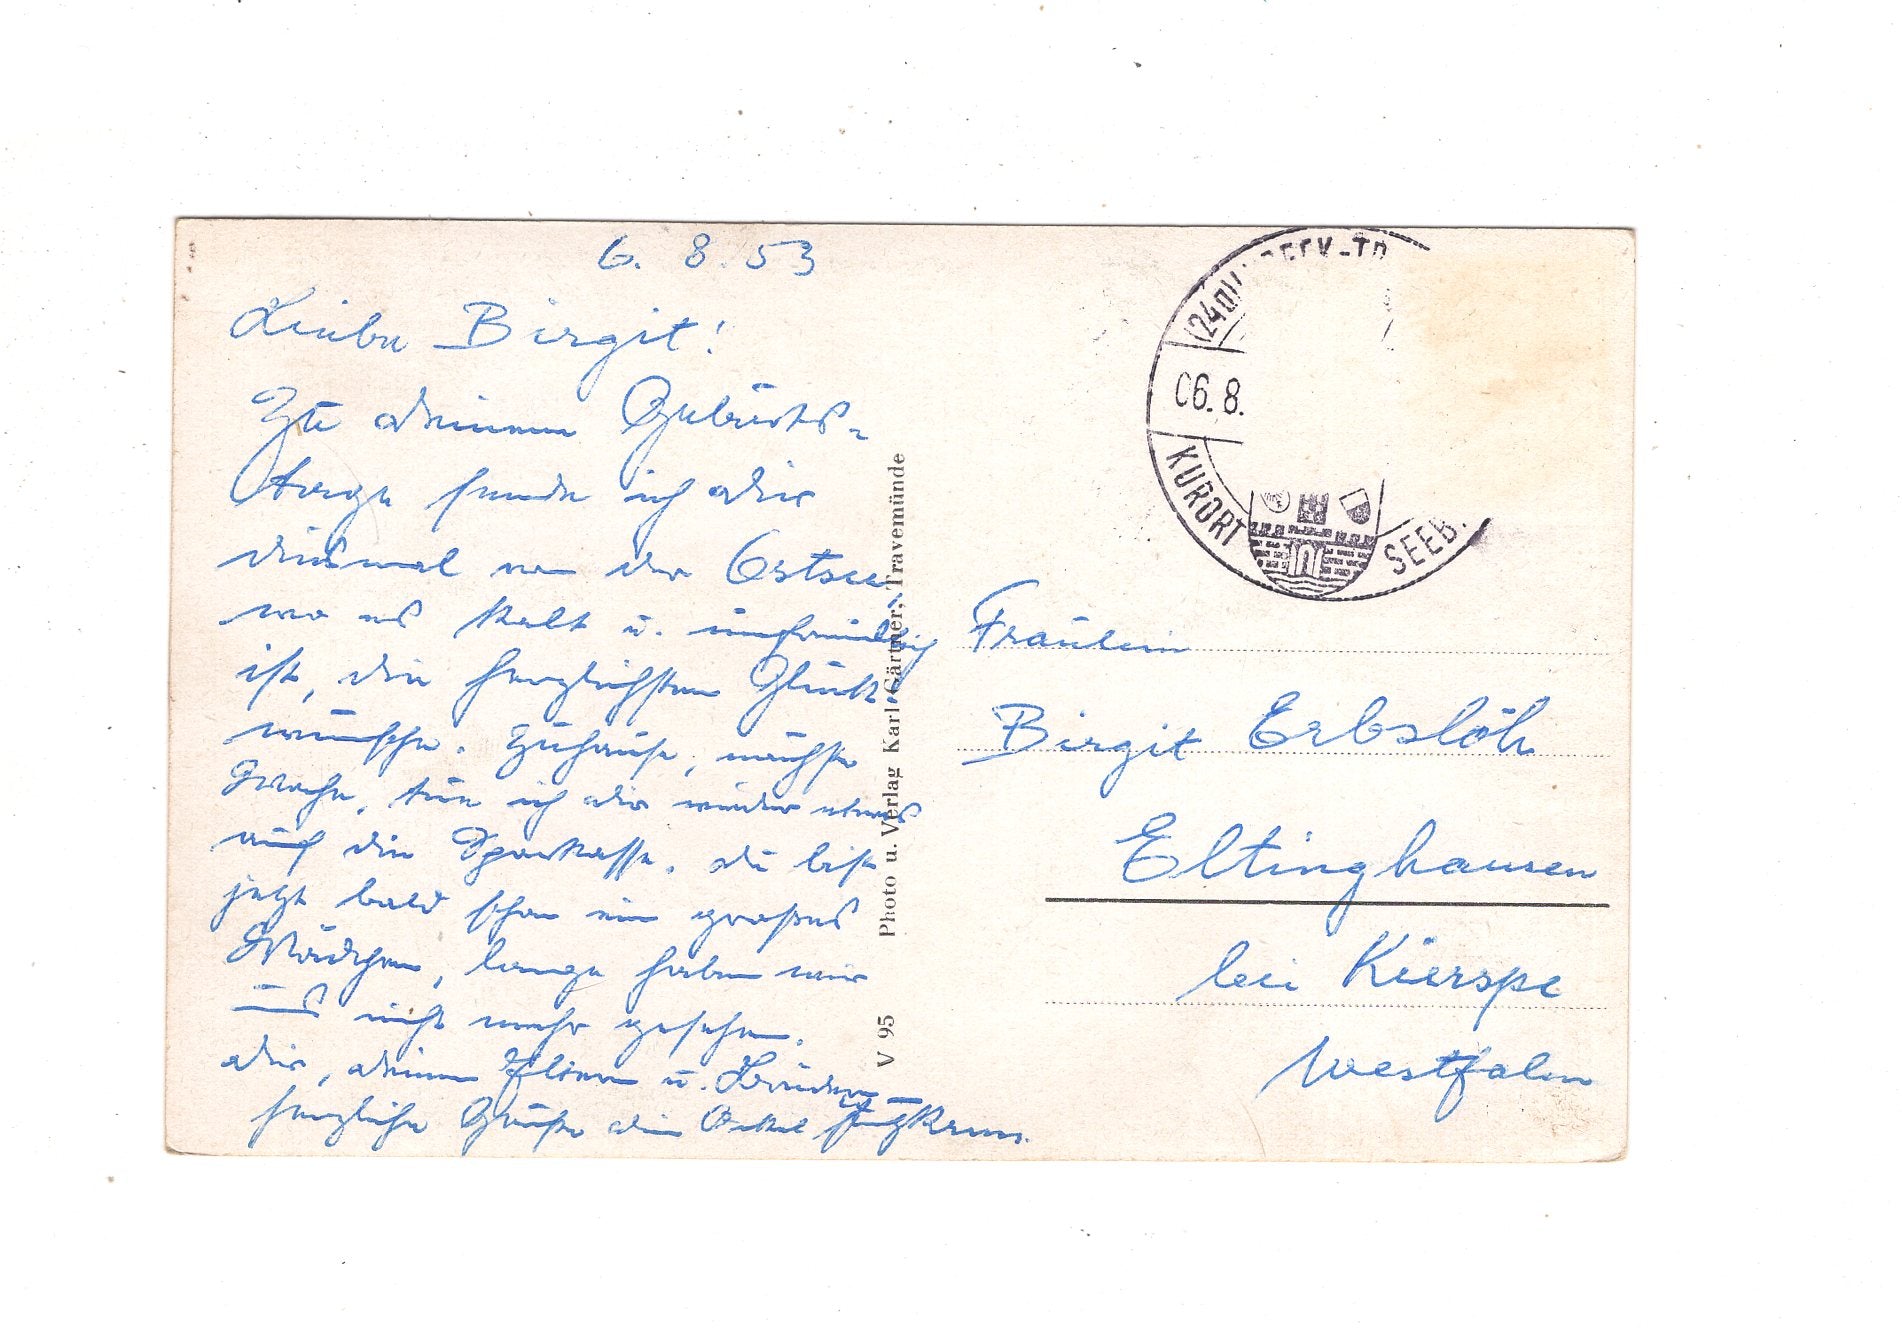 6. 8. 53
Liebe Birgit!
Zu deinem Geburts-
tage sende ich dir
diesmal von der Ostsee,
wo es kalt u. unfreundlich
ist, die herzlichsten Glück-
wünsche. Zuhause, nächste
Woche, tue ich dir wieder etwas
auf die Sparkasse. Du bist
jetzt bald schon ein großes
Mädchen, lange haben wir
uns nicht mehr gesehen.
Dir, deinen Eltern u. Brüdern
herzliche Grüße dein Onkel
Photo u. Verlag Karl Gärtner, Travemünde
V 95
06.8.
KURORT
SEEB
Fräulein
Birgit Erbslöh
Eltinghausen
bei Kierspe
Westfalen